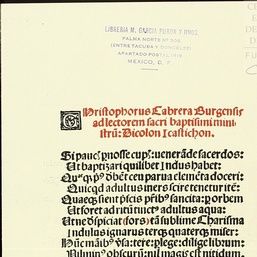 LIBRERIA M. GARCIA PURON Y HNOS.
PALMA NORTE Nº 308
(ENTRE TACUBA Y DONCELES)
APARTADO POSTAL 1619
MEXICO, D. F.
Cristophorus Cabrera Burgensis
ad lectorem sacri baptismi mini
strũ: Dicolon Icastichon.
Si paucꝭ pnosse cupꝭ: venerãde sacerdos:
Ut baptizari quilibet Indus habet:
Quęqꝫ pꝰ dbẽt ceu parua elemẽta doceri:
Quicqd adultus iners scire teneturitẽ:
Quaeqꝫ sient pscis pribꝰ sancita: porbem
Ut foret ad ritũ tinctꝰ adultus aqua:
Ut ne dſpiciat (fors) tã sublime Charisma
Indulus ignarus terqꝫ quaterqꝫ miser:
Hũc mãibꝰ vſa: tere: plege: dilige librum: